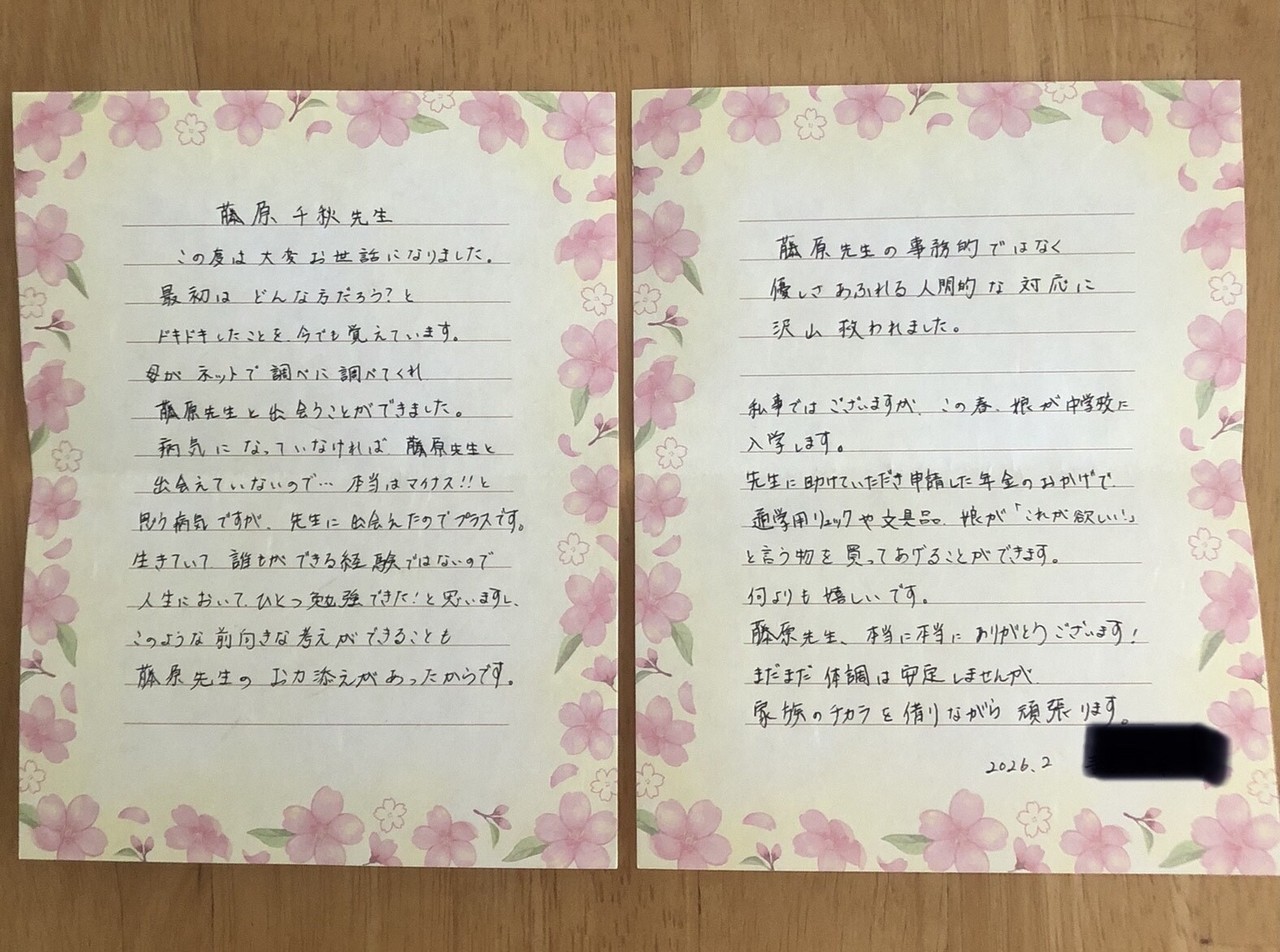 藤原千秋先生
この度は大変お世話になりました。
最初は どんな方だろう?と
ドキドキしたことを、今でも覚えています。
母が ネットで調べに調べてくれ
藤原先生と出会うことができました。
病気になっていなければ 藤原先生と
出会えていないので… 本当はマイナス!!と
思う病気ですが、先生に出会えたのでプラスです。
生きていて、誰もができる経験ではないので
人生において、ひとつ勉強できた!と思いますし、
このような前向きな考えができることも
藤原先生の お力添えがあったからです。
藤原先生の事務的ではなく
優しさあふれる人間的な対応に
沢山救われました。
私事ではございますが、この春、娘が中学校に
入学します。
先生に助けていただき申請した年金のおかげで、
通学用リュックや文具品、娘が「これが欲しい!」
と言う物を買ってあげることができます。
何よりも嬉しいです。
藤原先生、本当に本当にありがとうございます!
まだまだ 体調は安定しませんが、
家族のチカラを借りながら 頑張ります。
2026.2